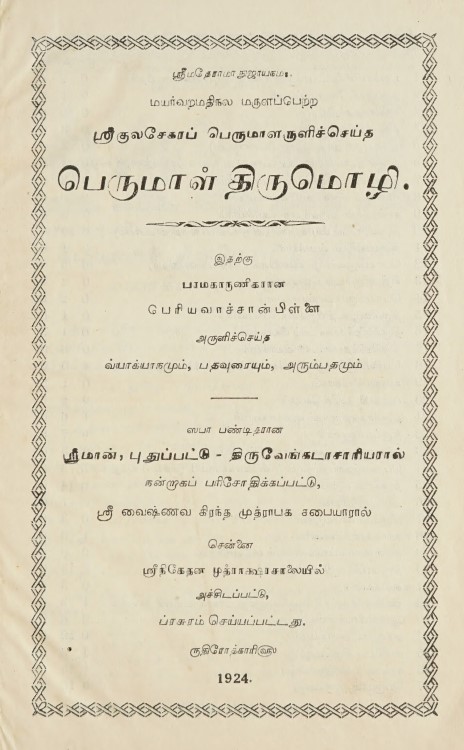 ஸ்ரீமதேராமாநுஜாயநம:.
மயர்வறமதிநல மருளப்பெற்ற
ஸ்ரீகுலசேகரப் பெருமாளருளிச்செய்த
பெருமாள் திருமொழி.
இதற்கு
பரமகாருணிகரான
பெரியவாச்சான்பிள்ளை
அருளிச்செய்த
வ்யாக்யாநமும், பதவுரையும், அரும்பதமும்
ஸபா பண்டிதரான
ஸ்ரீமான், புதுப்பட்டு - திருவேங்கடாசாரியரால்
நன்றாகப் பரிசோதிக்கப்பட்டு,
ஸ்ரீ வைஷ்ணவ கிரந்த முத்ராபக சபையாரால்
சென்னை
ஸ்ரீநிகேதன முத்ராக்ஷரசாலையில்
அச்சிடப்பட்டு,
ப்ரசுரம் செய்யப்பட்டது.
ருதிரோத்காரிஹு
1924.